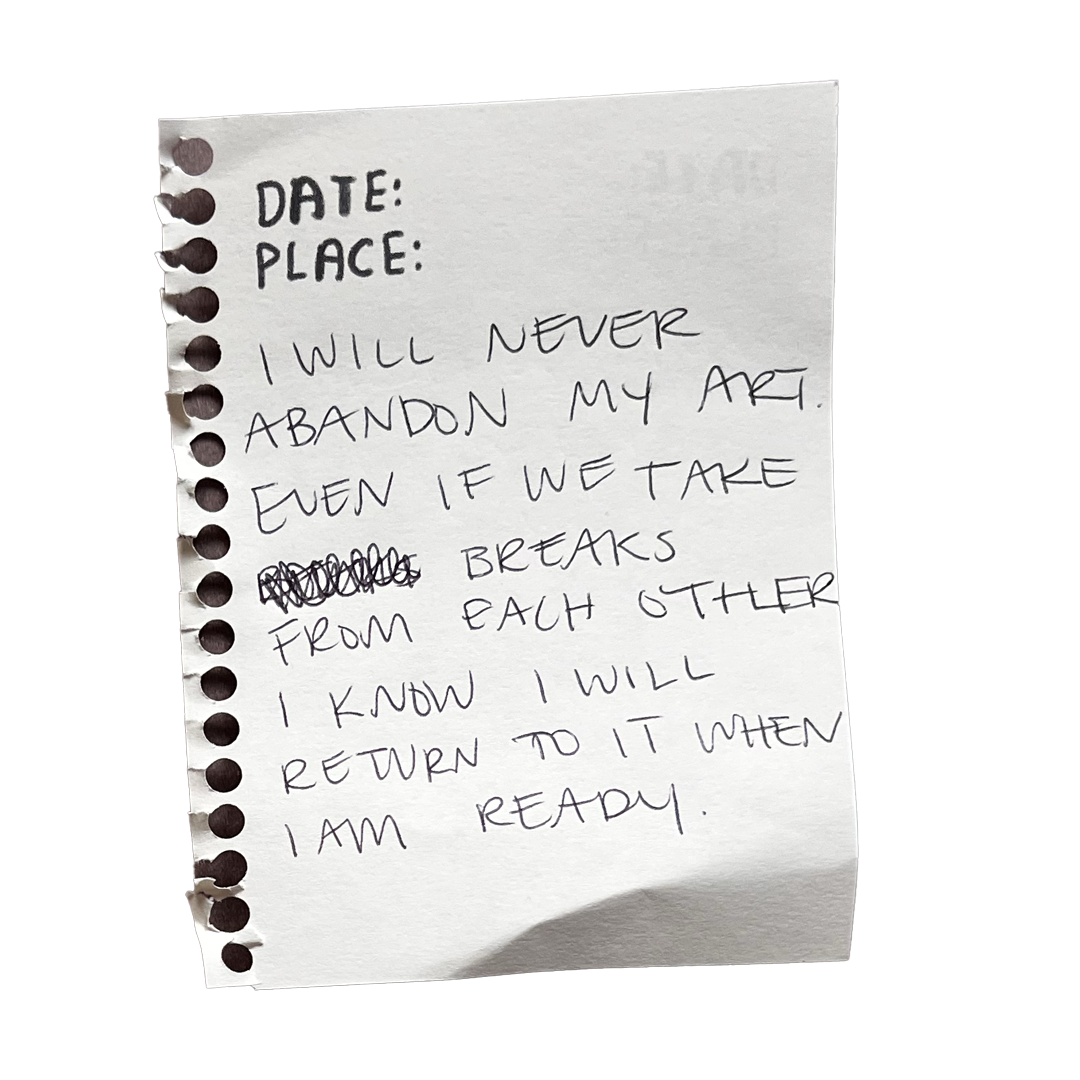 DATE:
PLACE:
I WILL NEVER
ABANDON MY ART.
EVEN IF WE TAKE
BREAKS
FROM EACH OTHER
I KNOW I WILL
RETURN TO IT WHEN
I AM READY.